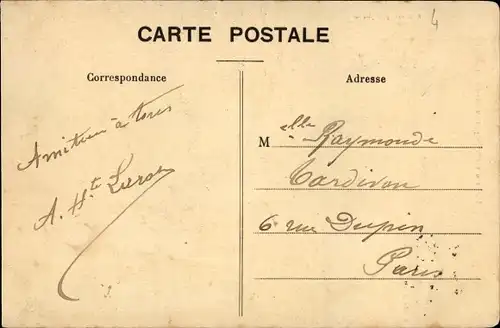 4
CARTE POSTALE
Correspondance
Adresse
Amitiés à tous
A. Hte
Melle Raymonde
Tardivon
6 rue Dupin
Paris